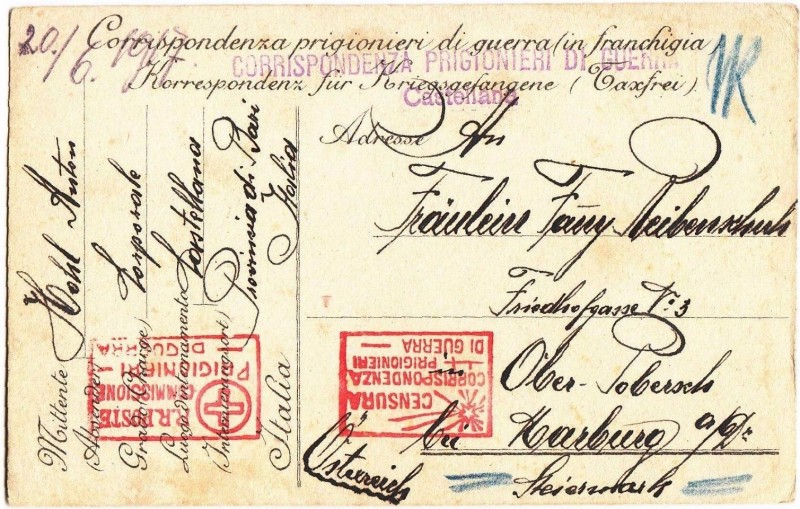 20./6. 1917
Corrispondenza prigionieri di guerra (in franchigia)
CORRISPONDENZA PRIGIONIERI DI GUERRA
Castellana
Korrespondenz für Kriegsgefangene (Taxfrei).
Adresse An
Fräulein Fany Reibenschuh
Friedhofgasse No: 3
Ober-Pobersch
in
bei Marburg a/Dr
Steiermark
Österreich
Mittente
(Absender)
Hohl Anton
Grado (Charge)
Corporale
Luogo d'internamento
(Internierungsort)
Castellana
Provincia di Bari
Italia
Italia
R.R. POSTE
COMMISSIONE
PRIGIONIERI
DI GUERRA
CENSURA
CORRISPONDENZA
PRIGIONIERI
DI GUERRA